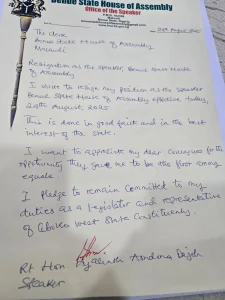 Benue State House of Assembly
Office of the Speaker
24th August 2025
The Clerk
Benue State House of Assembly
Makurdi
Resignation as the Speaker, Benue State House
of Assembly
I wish to resign my position as the Speaker
Benue State House of Assembly effective today,
24th August, 2025
This is done in good faith and in the best
interest of the state.
I want to appreciate my dear Colleagues for the
opportunity they gave me to be the first among
equals.
I pledge to remain committed to my
duties as a legislator and representative
of Gboko West State Constituency.
Rt Hon Aondona Dajoh
Speaker